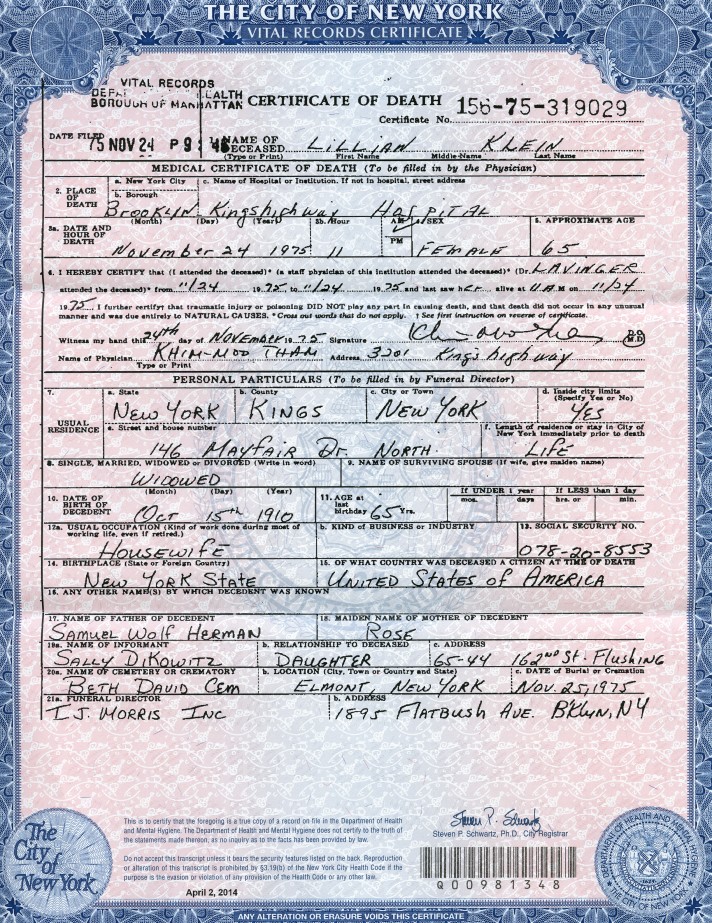 THE CITY OF NEW YORK
VITAL RECORDS CERTIFICATE
VITAL RECORDS
HEALTH
BOROUGH OF MANHATTAN
CERTIFICATE OF DEATH
156-75-319029
Certificate No.
DATE FILED
75 NOV 24 P 9:
1. NAME OF DECEASED LILLIAN KLEIN
(Type or Print) First Name Middle Name Last Name
MEDICAL CERTIFICATE OF DEATH (To be filled in by the Physician)
2. PLACE OF DEATH
a. New York City c. Name of Hospital or Institution. If not in hospital, street address
b. Borough
Brooklyn Kingshighway HOSPITAL
3a. DATE AND HOUR OF DEATH
(Month) (Day) (Year) 3b. Hour AM PM SEX 5. APPROXIMATE AGE
November 24 1975 11 FEMALE 65
6. I HEREBY CERTIFY that (I attended the deceased)* (a staff physician of this institution attended the deceased)* (Dr. LAVINGER
attended the deceased)* from 11/24 1975 to 11/24 1975 and last saw her alive at 11 A M on 11/24
1975. I further certify that traumatic injury or poisoning DID NOT play any part in causing death, and that death did not occur in any unusual
manner and was due entirely to NATURAL CAUSES. *Cross out words that do not apply. † See first instruction on reverse of certificate.
Witness my hand this 24th day of NOVEMBER 1975 Signature D.O. M.D
Name of Physician KHIM-MOD THAM Address 3201 Kings highway
Type or Print
PERSONAL PARTICULARS (To be filled in by Funeral Director)
7. USUAL RESIDENCE
a. State b. County c. City or Town d. Inside city limits (Specify Yes or No)
NEW YORK KINGS NEW YORK YES
e. Street and house number f. Length of residence or stay in City of New York immediately prior to death
146 MAYFAIR Dr. NORTH. LIFE
8. SINGLE, MARRIED, WIDOWED or DIVORCED (Write in word) 9. NAME OF SURVIVING SPOUSE (If wife, give maiden name)
WIDOWED
10. DATE OF BIRTH OF DECEDENT
(Month) (Day) (Year) 11. AGE at last birthday 65 Yrs. If UNDER 1 year mos. days If LESS than 1 day hrs. or min.
Oct 15th 1910
12a. USUAL OCCUPATION (Kind of work done during most of working life, even if retired.) b. KIND OF BUSINESS or INDUSTRY 13. SOCIAL SECURITY NO.
HOUSEWIFE 078-20-8553
14. BIRTHPLACE (State or Foreign Country) 15. OF WHAT COUNTRY WAS DECEASED A CITIZEN AT TIME OF DEATH
NEW YORK STATE UNITED STATES OF AMERICA
16. ANY OTHER NAME(S) BY WHICH DECEDENT WAS KNOWN
17. NAME OF FATHER OF DECEDENT 18. MAIDEN NAME OF MOTHER OF DECEDENT
SAMUEL WOLF HERMAN ROSE
19a. NAME OF INFORMANT b. RELATIONSHIP TO DECEASED c. ADDRESS
SALLY DIKOWITZ DAUGHTER 65-44 162nd St. FLUSHING
20a. NAME OF CEMETERY OR CREMATORY b. LOCATION (City, Town or Country and State) c. DATE of Burial or Cremation
BETH DAVID CEM ELMONT NEW YORK NOV. 25, 1975
21a. FUNERAL DIRECTOR b. ADDRESS
I.J. MORRIS INC 1895 FLATBUSH AVE. B'KLYN, NY
The City of New York
This is to certify that the foregoing is a true copy of a record on file in the Department of Health
and Mental Hygiene. The Department of Health and Mental Hygiene does not certify to the truth of
the statements made thereon, as no inquiry as to the facts has been provided by law.
Do not accept this transcript unless it bears the security features listed on the back. Reproduction
or alteration of this transcript is prohibited by §3.19(b) of the New York City Health Code if the
purpose is the evasion or violation of any provision of the Health Code or any other law.
April 2, 2014
Steven P. Schwartz
Steven P. Schwartz, Ph.D., City Registrar
Q00981348
DEPARTMENT OF HEALTH AND MENTAL HYGIENE
THE CITY OF NEW YORK
ANY ALTERATION OR ERASURE VOIDS THIS CERTIFICATE